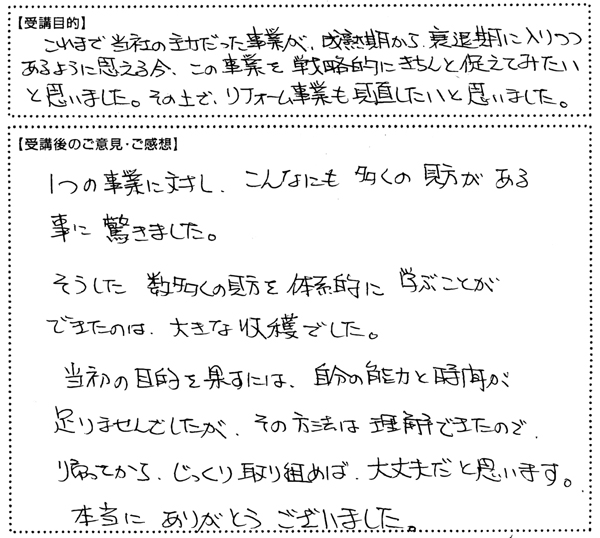 【受講目的】
これまで当社の主力だった事業が、成熟期から衰退期に入りつつ
あるように思える今、この事業を戦略的にきちんと促えてみたい
と思いました。その上で、リフォーム事業も見直したいと思いました。
【受講後のご意見・ご感想】
1つの事業に対し、こんなにも多くの見方がある
事に驚きました。
そうした数多くの見方を体系的に学ぶことが
できたのは、大きな収穫でした。
当初の目的を果すには、自分の能力と時間が
足りませんでしたが、その方法は理解できたので、
帰ってから、じっくり取り組めば、大丈夫だと思います。
本当にありがとうございました。